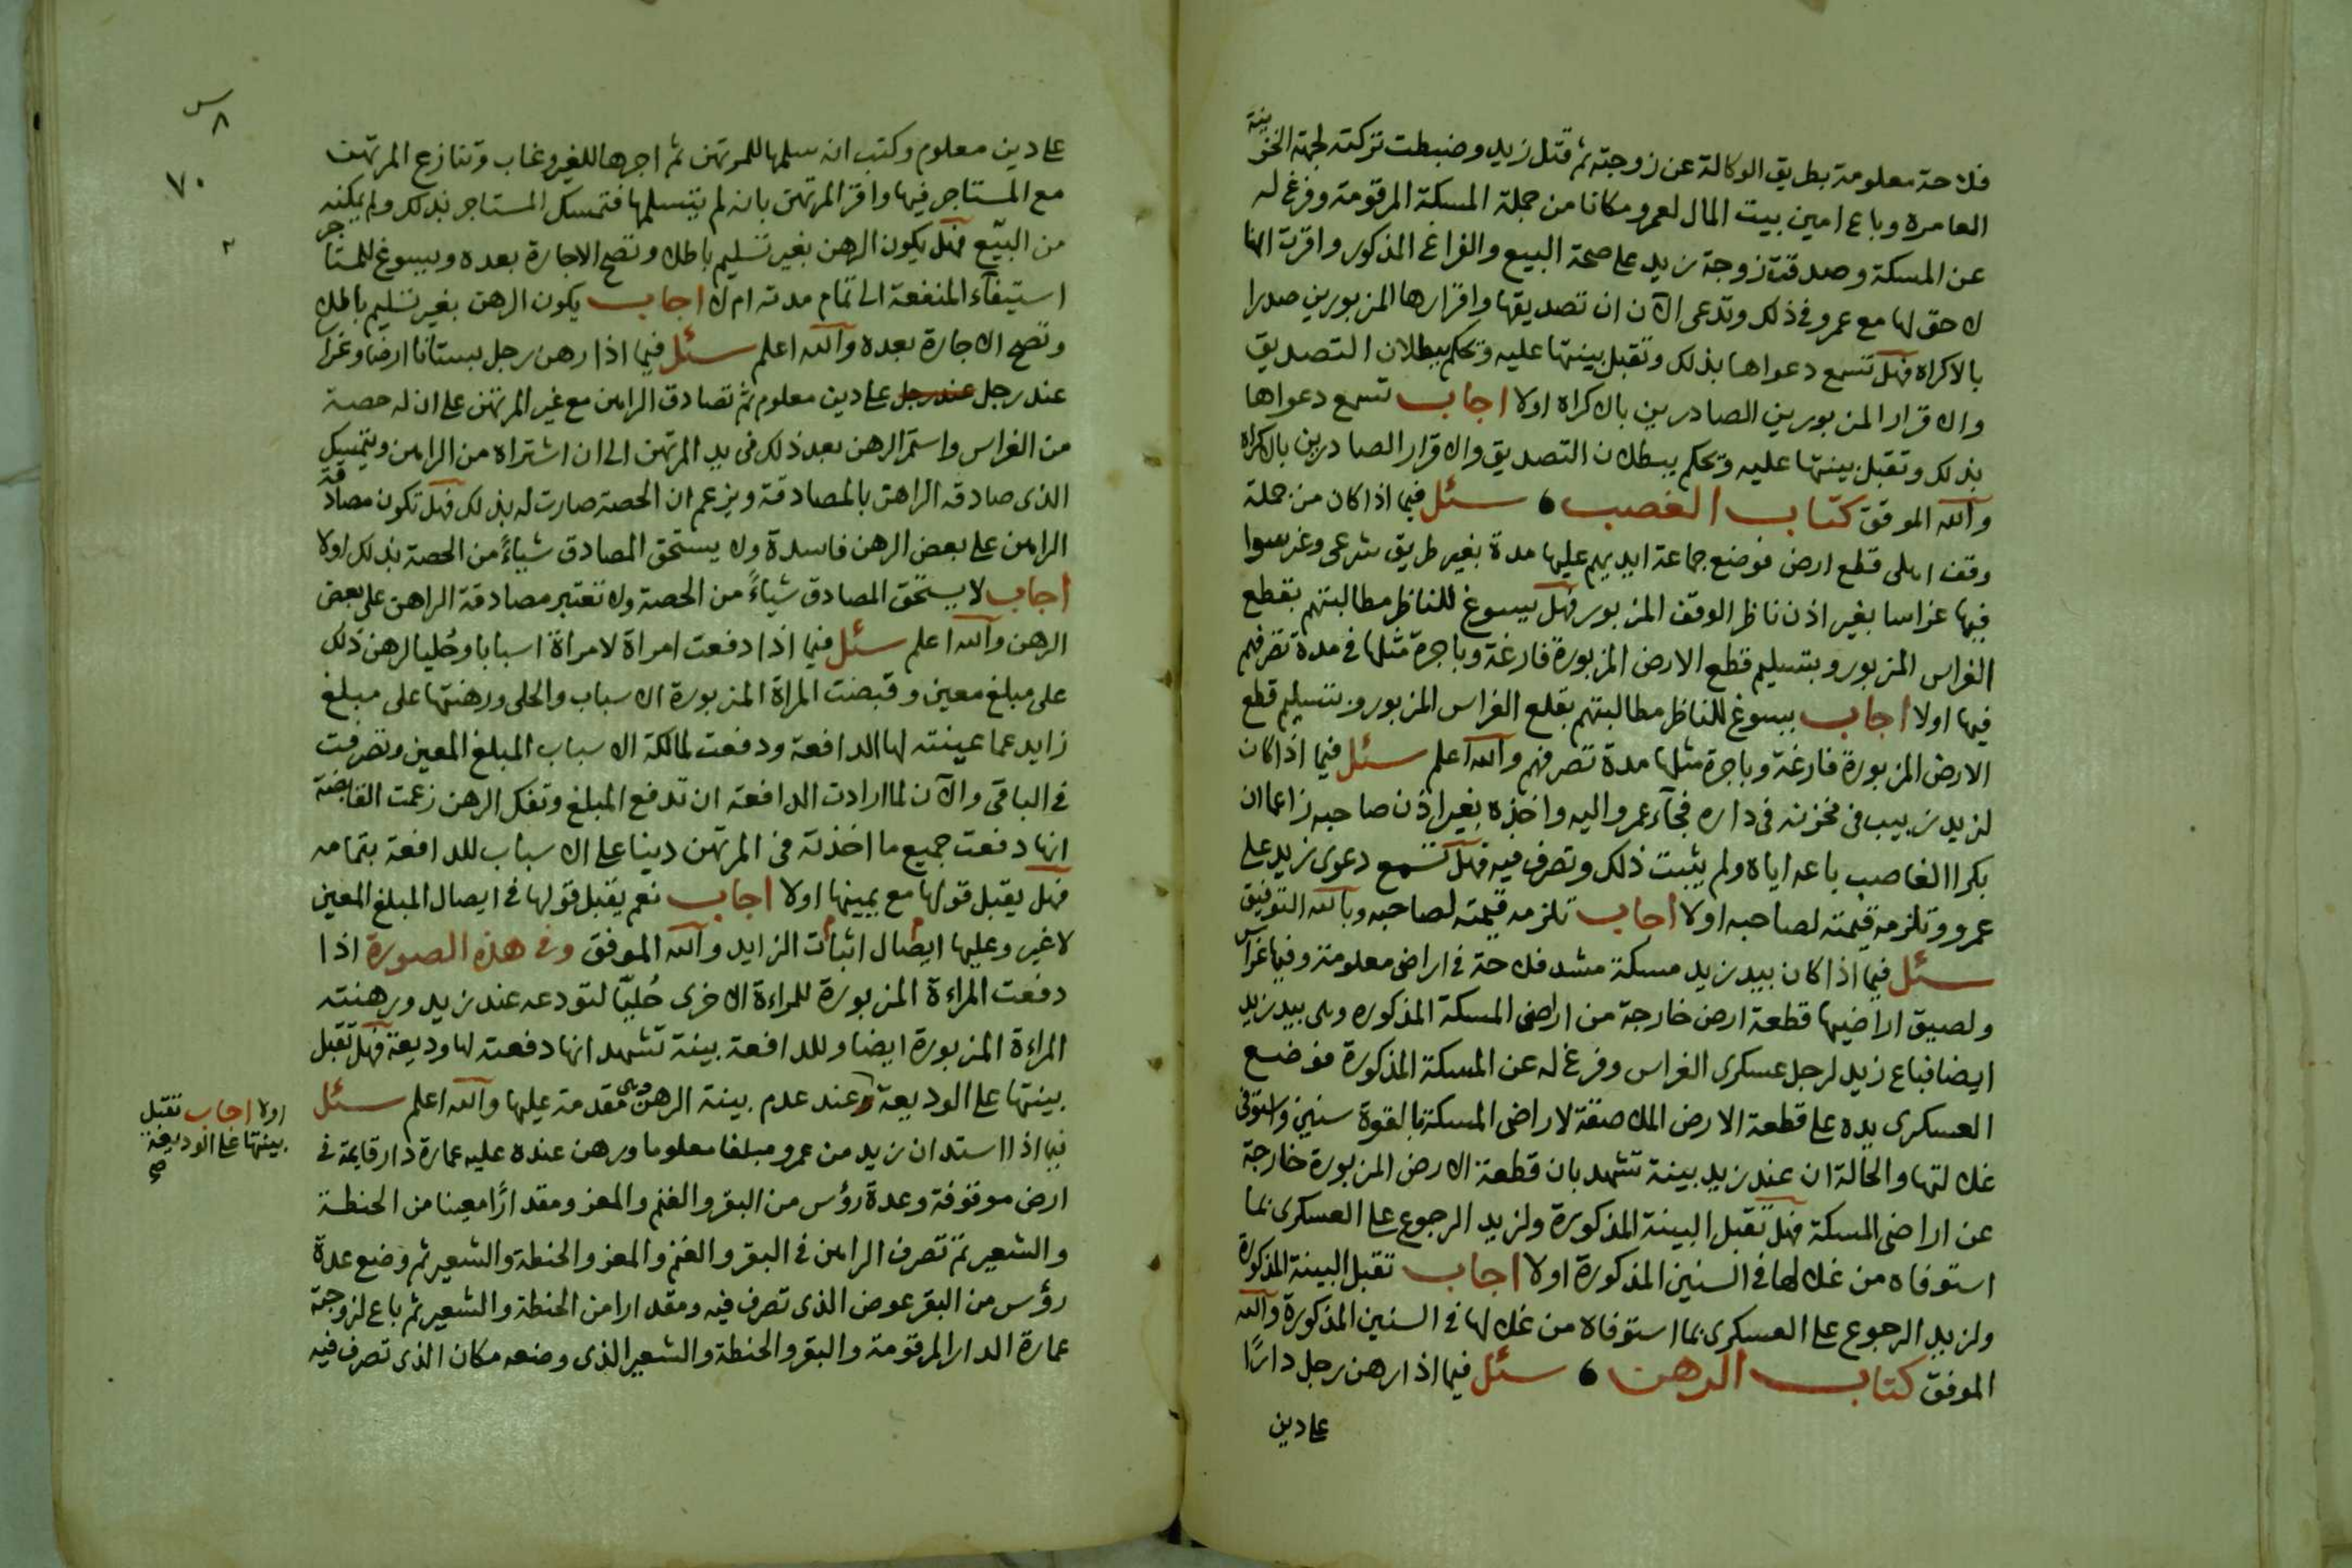 فلاحة معلومة بطريق الوكالة عن زوجته ثم قتل زيد وضبطت تركته لجهة الخزينة
العامرة وباع امين بيت المال لعمرو مكانا من جملة المسكة المرقومة وفرغ له
عن المسكة وصدقت زوجة زيد على صحة البيع والفراغ المذكور واقرت انها
لا حق لها مع عمرو في ذلك وتدعى الآن ان تصديقها واقرارها المزبورين صدرا
بالاكراه فهل تسمع دعواها بذلك وتقبل بينتها عليه ويحكم ببطلان التصديق
والاقرار المزبورين الصادرين بالاكراه اولا اجاب تسمع دعواها
بذلك وتقبل بينتها عليه ويحكم ببطلان التصديق والاقرار الصادرين بالاكراه
والله الموفق كتاب الغصب ، سئل فيما اذا كان من جملة
وقف اهلى قطع ارض فوضع جماعة ايديهم عليها مدة بغير طريق شرعى وغرسوا
فيها غراسا بغير اذن ناظر الوقف المزبور فهل يسوغ للناظر مطالبتهم بقطع
الغراس المزبور وبتسليم قطع الارض المزبورة فارغة وباجرة مثلها في مدة تصرفهم
فيها اولا اجاب يسوغ للناظر مطالبتهم بقلع الغراس المزبور وبتسليم قطع
الارض المزبورة فارغة وباجرة مثلها مدة تصرفهم والله اعلم سئل فيما اذا كان
لزيد زبيب في مخزنه في داره فجآء عمرو اليه واخذه بغير اذن صاحبه زاعما ان
بكرا الغاصب باعه اياه ولم يثبت ذلك وتصرف فيه فهل تسمع دعوى زيد على
عمرو وتلزمه قيمته لصاحبه اولا اجاب تلزمه قيمته لصاحبه وبالله التوفيق
سئل فيما اذا كان بيد زيد مسكة مشد فلاحة في اراضى معلومة وفيها غراس
ولصيق اراضيها قطعة ارض خارجة من اراضى المسكة المذكوره وهى بيد زيد
ايضا فباع زيد لرجل عسكرى الغراس وفرغ له عن المسكة المذكورة فوضع
العسكرى يده على قطعة الارض الملاصقة لاراضى المسكة بالقوة سنين واستوفى
غلالتها والحالة ان عند زيد بينة تشهد بان قطعة الارض المزبورة خارجة
عن اراضى المسكة فهل تقبل البينة المذكورة ولزيد الرجوع على العسكرى بما
استوفاه من غلالها في السنين المذكورة اولا اجاب تقبل البينة المذكورة
ولزيد الرجوع على العسكرى بما استوفاه من غلالها في السنين المذكورة والله
الموفق كتاب الرهن ، سئل فيما اذا رهن رجل دارًا
على دين
س
٨
٧٠
٢
على دين معلوم وكتب انه سلمها للمرتهن ثم اجرها للغير وغاب وتنازع المرتهن
مع المستاجر فيها واقر المرتهن بانه لم يتسلمها فتمسك المستاجر بذلك ولم يمكنه
من البيّع فهل يكون الرهن بغير تسليم باطلا وتصح الاجارة بعده ويسوغ للمستاجر
استيفآء المنفعة الى تمام مدته ام لا اجاب يكون الرهن بغير تسليم باطلا
وتصح الاجارة بعده والله اعلم سئل فيما اذا رهن رجل بستانا ارضا وغراسا
عند رجل عند رجل على دين معلوم ثم تصادق الراهن مع غير المرتهن على ان له حصة
من الغراس واستمر الرهن بعد ذلك في يد المرتهن الى ان اشتراه من الراهن ويتمسك
الذى صادقه الراهن بالمصادقة ويزعم ان الحصة صارت له بذلك فهل تكون مصادقة
الراهن على بعض الرهن فاسدة ولا يستحق المصادق شياءً من الحصة بذلك اولا
اجاب لا يستحق المصادق شياءً من الحصة ولا تعتبر مصادقة الراهن على بعض
الرهن والله اعلم سئل فيما اذا دفعت امراة لامراة اسبابا وحُليا لرهن ذلك
على مبلغ معين وقبضت المراة المزبورة الاسباب والحلى ورهنتها على مبلغ
زايد عما عينته لها الدافعة ودفعت لمالكة الاسباب المبلغ المعين وتصرفت
في الباقى والآن لما ارادت الدافعة ان تدفع المبلغ وتفك الرهن زعمت القابضة
انها دفعت جميع ما اخذته في المرتهن دينا على الاسباب للدافعة بتمامه
فهل يقبل قولها مع يمينها اولا اجاب نعم يقبل قولها في ايصال المبلغ المعين
لا غير وعليها ايصال اثبات الزايد والله الموفق وفي هذه الصورة اذا
دفعت المراءة المزبورة للمراءة الاخرى حُليًا لتودعه عند زيد ورهنته
المراءة المزبورة ايضا وللدافعة بينة تشهد انها دفعته لها وديعة فهل تقبل
بينتها على الوديعة وعند عدم بينة الرهن وهى مقدمة عليها والله اعلم سئل
اولا اجاب تقبل
بينتها على الوديعة
صح
فيما اذا استدان زيد من عمرو مبلغا معلوما ورهن عنده عليه عمارة دار قايمة في
ارض موقوفة وعدة رؤس من البقر والغنم والمعز ومقدارًا معينا من الحنطة
والشعير ثم تصرف الراهن في البقر والغنم والمعز والحنطة والشعير ثم وضع عدة
رؤس من البقر عوض الذى تصرف فيه ومقدارا من الحنطة والشعير ثم باع لزوجته
عمارة الدار المرقومة والبقر والحنطة والشعير الذى وضعه مكان الذى تصرف فيه